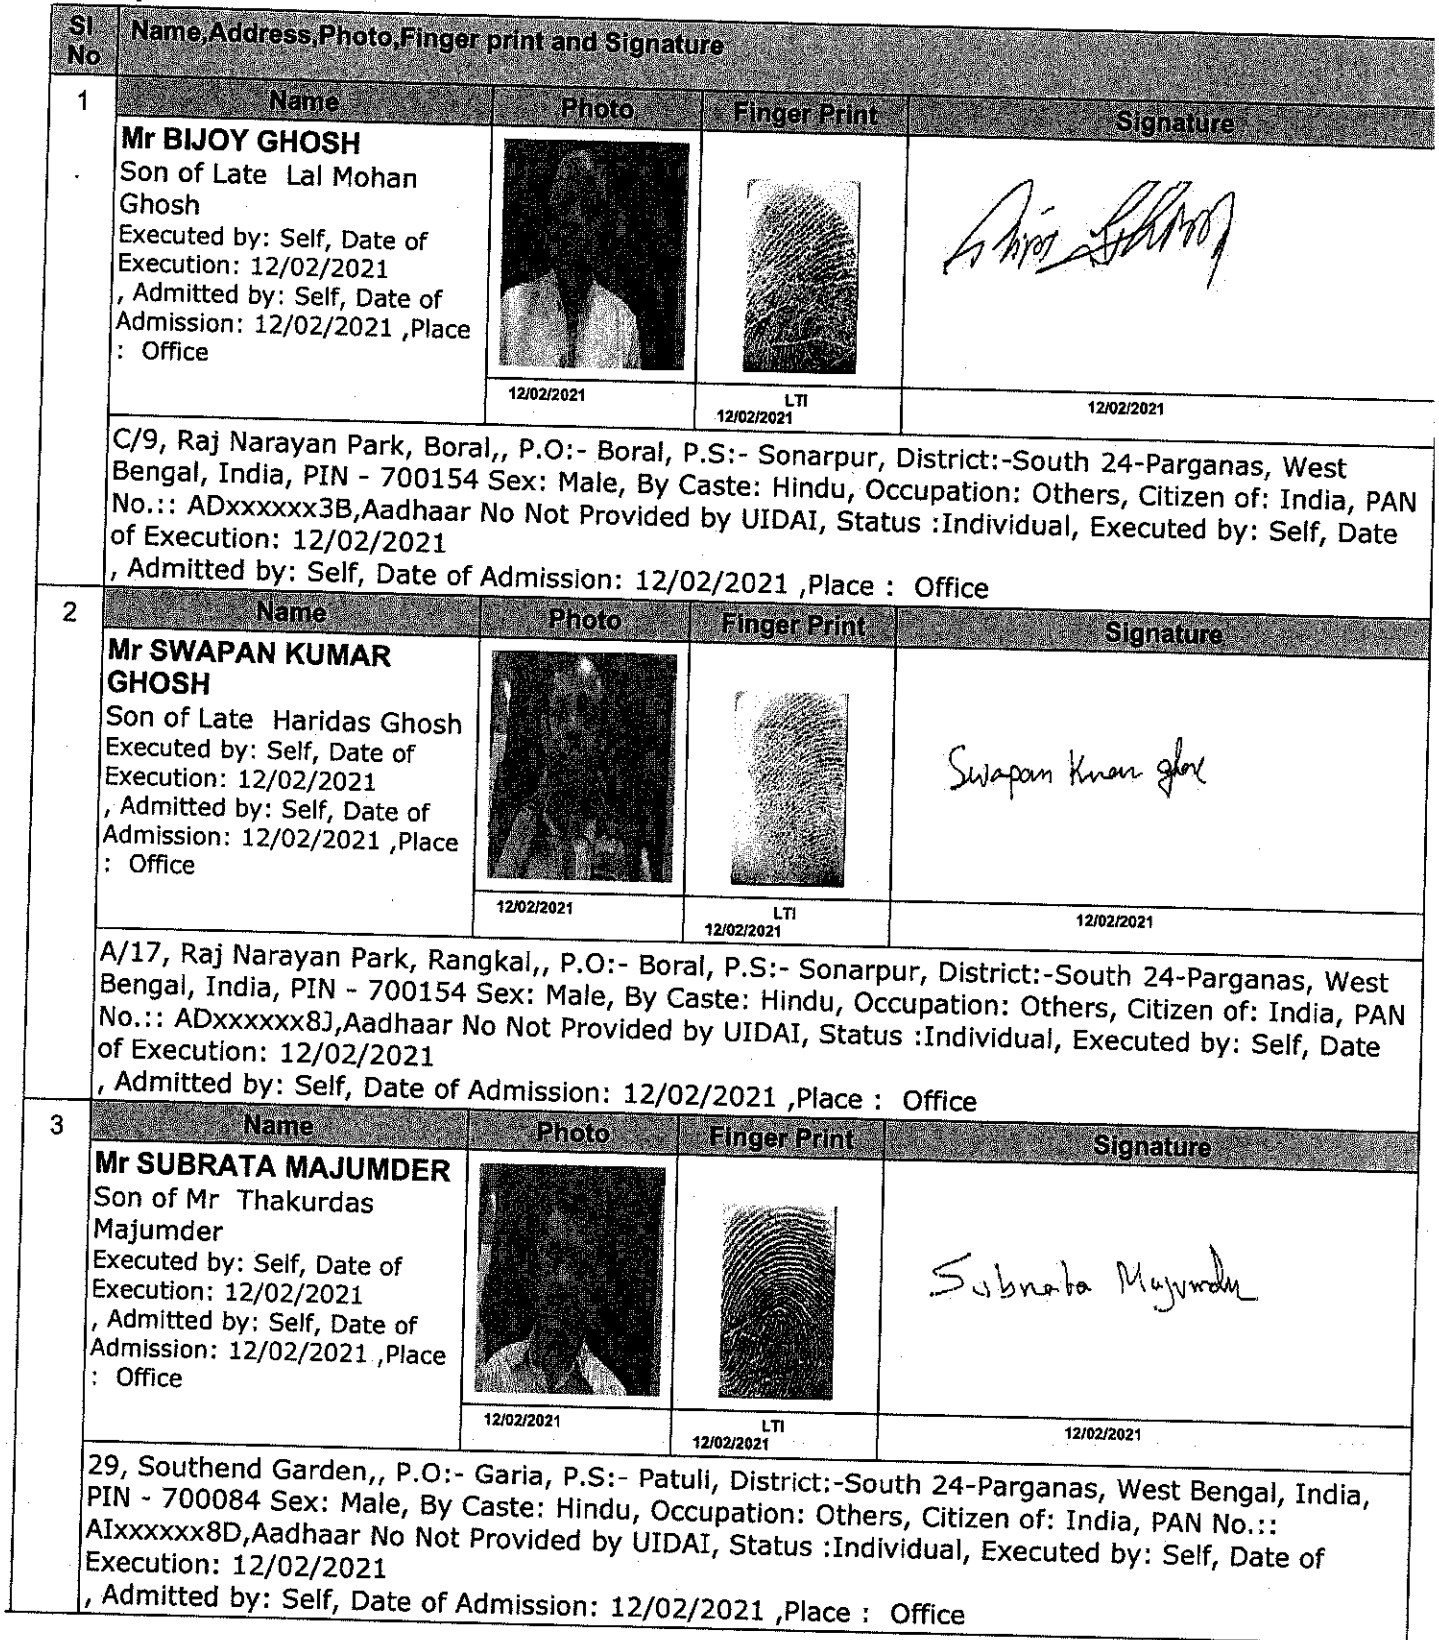 Sl No Name,Address,Photo,Finger print and Signature
1 Name Photo Finger Print Signature
Mr BIJOY GHOSH
Son of Late Lal Mohan
Ghosh
Executed by: Self, Date of
Execution: 12/02/2021
, Admitted by: Self, Date of
Admission: 12/02/2021 ,Place
: Office
12/02/2021 LTI 12/02/2021 12/02/2021
C/9, Raj Narayan Park, Boral,, P.O:- Boral, P.S:- Sonarpur, District:-South 24-Parganas, West
Bengal, India, PIN - 700154 Sex: Male, By Caste: Hindu, Occupation: Others, Citizen of: India, PAN
No.:: ADxxxxxx3B,Aadhaar No Not Provided by UIDAI, Status :Individual, Executed by: Self, Date
of Execution: 12/02/2021
, Admitted by: Self, Date of Admission: 12/02/2021 ,Place : Office
2 Name Photo Finger Print Signature
Mr SWAPAN KUMAR
GHOSH
Son of Late Haridas Ghosh
Executed by: Self, Date of
Execution: 12/02/2021
, Admitted by: Self, Date of
Admission: 12/02/2021 ,Place
: Office
Swapan
12/02/2021 LTI 12/02/2021 12/02/2021
A/17, Raj Narayan Park, Rangkal,, P.O:- Boral, P.S:- Sonarpur, District:-South 24-Parganas, West
Bengal, India, PIN - 700154 Sex: Male, By Caste: Hindu, Occupation: Others, Citizen of: India, PAN
No.:: ADxxxxxx8J,Aadhaar No Not Provided by UIDAI, Status :Individual, Executed by: Self, Date
of Execution: 12/02/2021
, Admitted by: Self, Date of Admission: 12/02/2021 ,Place : Office
3 Name Photo Finger Print Signature
Mr SUBRATA MAJUMDER
Son of Mr Thakurdas
Majumder
Executed by: Self, Date of
Execution: 12/02/2021
, Admitted by: Self, Date of
Admission: 12/02/2021 ,Place
: Office
Subrata Majumder
12/02/2021 LTI 12/02/2021 12/02/2021
29, Southend Garden,, P.O:- Garia, P.S:- Patuli, District:-South 24-Parganas, West Bengal, India,
PIN - 700084 Sex: Male, By Caste: Hindu, Occupation: Others, Citizen of: India, PAN No.::
AIxxxxxx8D,Aadhaar No Not Provided by UIDAI, Status :Individual, Executed by: Self, Date of
Execution: 12/02/2021
, Admitted by: Self, Date of Admission: 12/02/2021 ,Place : Office